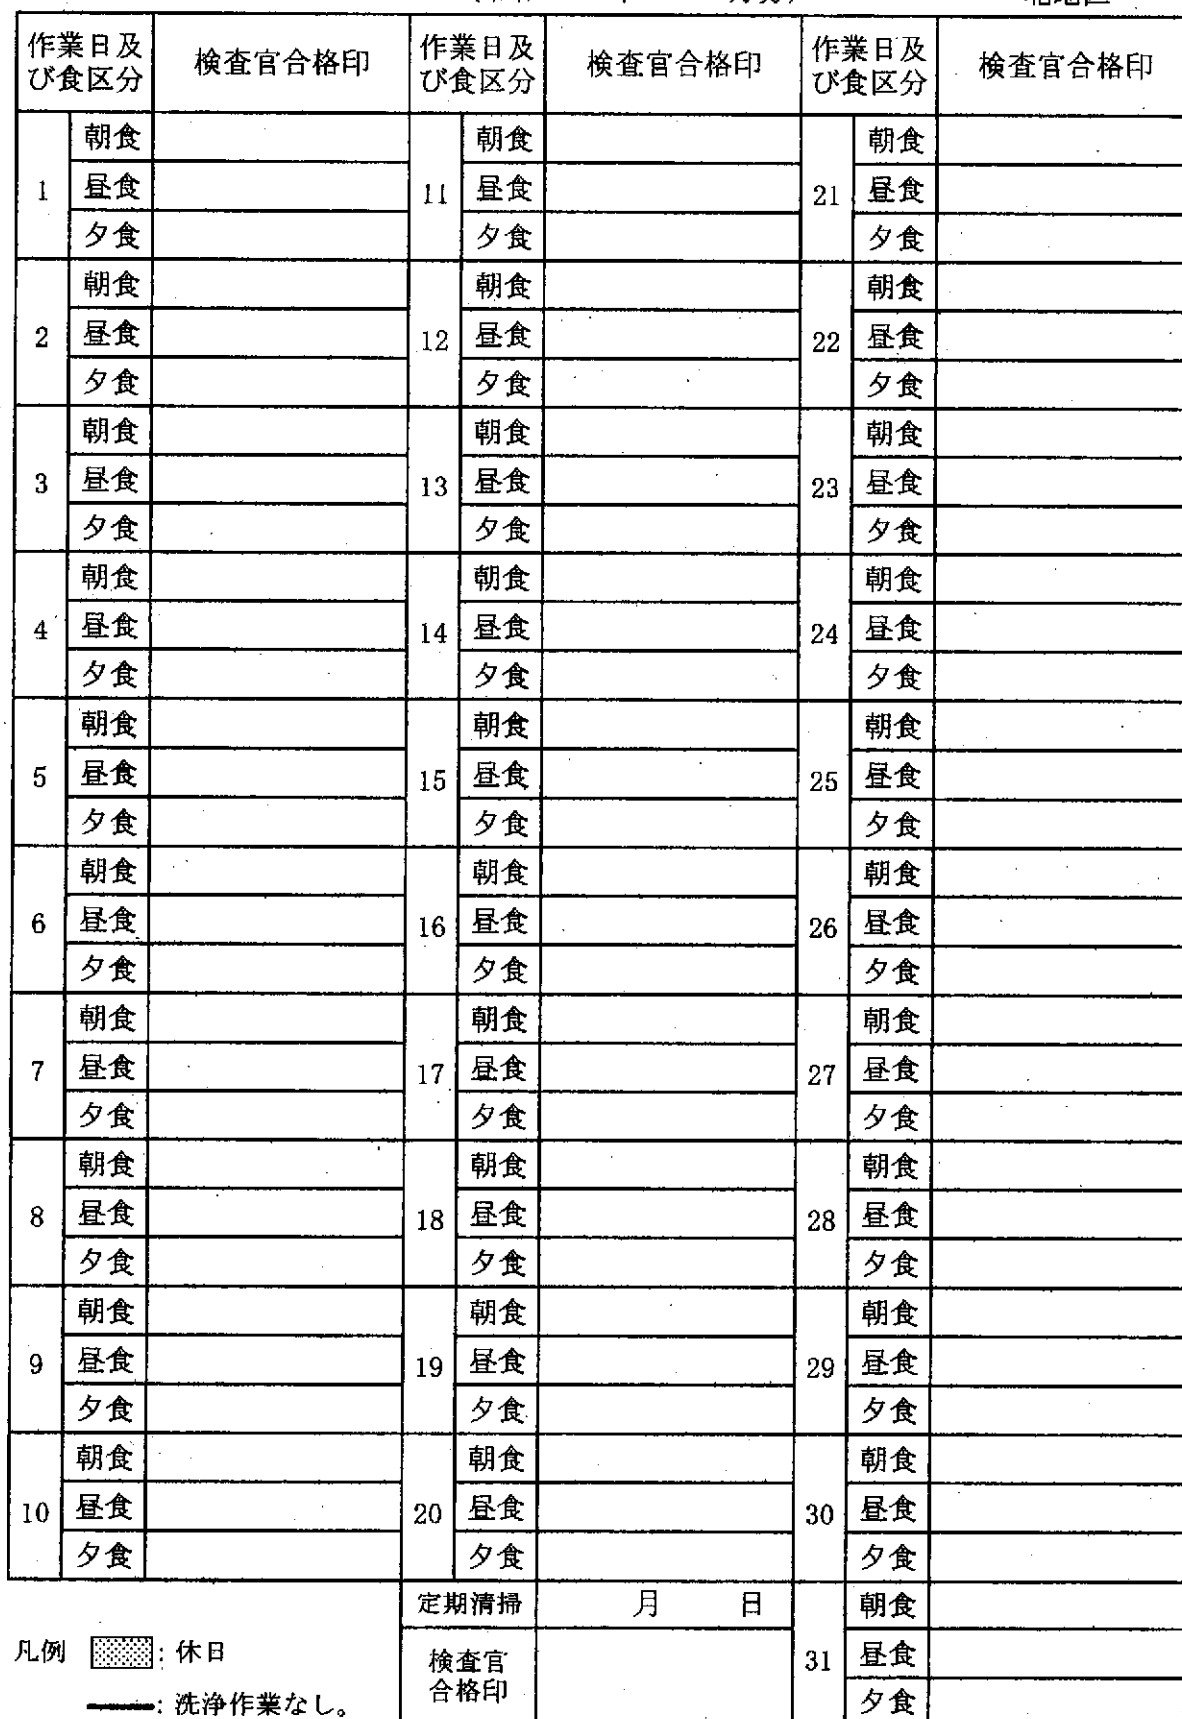 作業日及び食区分 検査官合格印 作業日及び食区分 検査官合格印 作業日及び食区分 検査官合格印
1 朝食 11 朝食 21 朝食
昼食 昼食 昼食
夕食 夕食 夕食
2 朝食 12 朝食 22 朝食
昼食 昼食 昼食
夕食 夕食 夕食
3 朝食 13 朝食 23 朝食
昼食 昼食 昼食
夕食 夕食 夕食
4 朝食 14 朝食 24 朝食
昼食 昼食 昼食
夕食 夕食 夕食
5 朝食 15 朝食 25 朝食
昼食 昼食 昼食
夕食 夕食 夕食
6 朝食 16 朝食 26 朝食
昼食 昼食 昼食
夕食 夕食 夕食
7 朝食 17 朝食 27 朝食
昼食 昼食 昼食
夕食 夕食 夕食
8 朝食 18 朝食 28 朝食
昼食 昼食 昼食
夕食 夕食 夕食
9 朝食 19 朝食 29 朝食
昼食 昼食 昼食
夕食 夕食 夕食
10 朝食 20 朝食 30 朝食
昼食 昼食 昼食
夕食 夕食 夕食
定期清掃 月 日 31 朝食
凡例 : 休日 検査官合格印 昼食
: 洗浄作業なし。 夕食